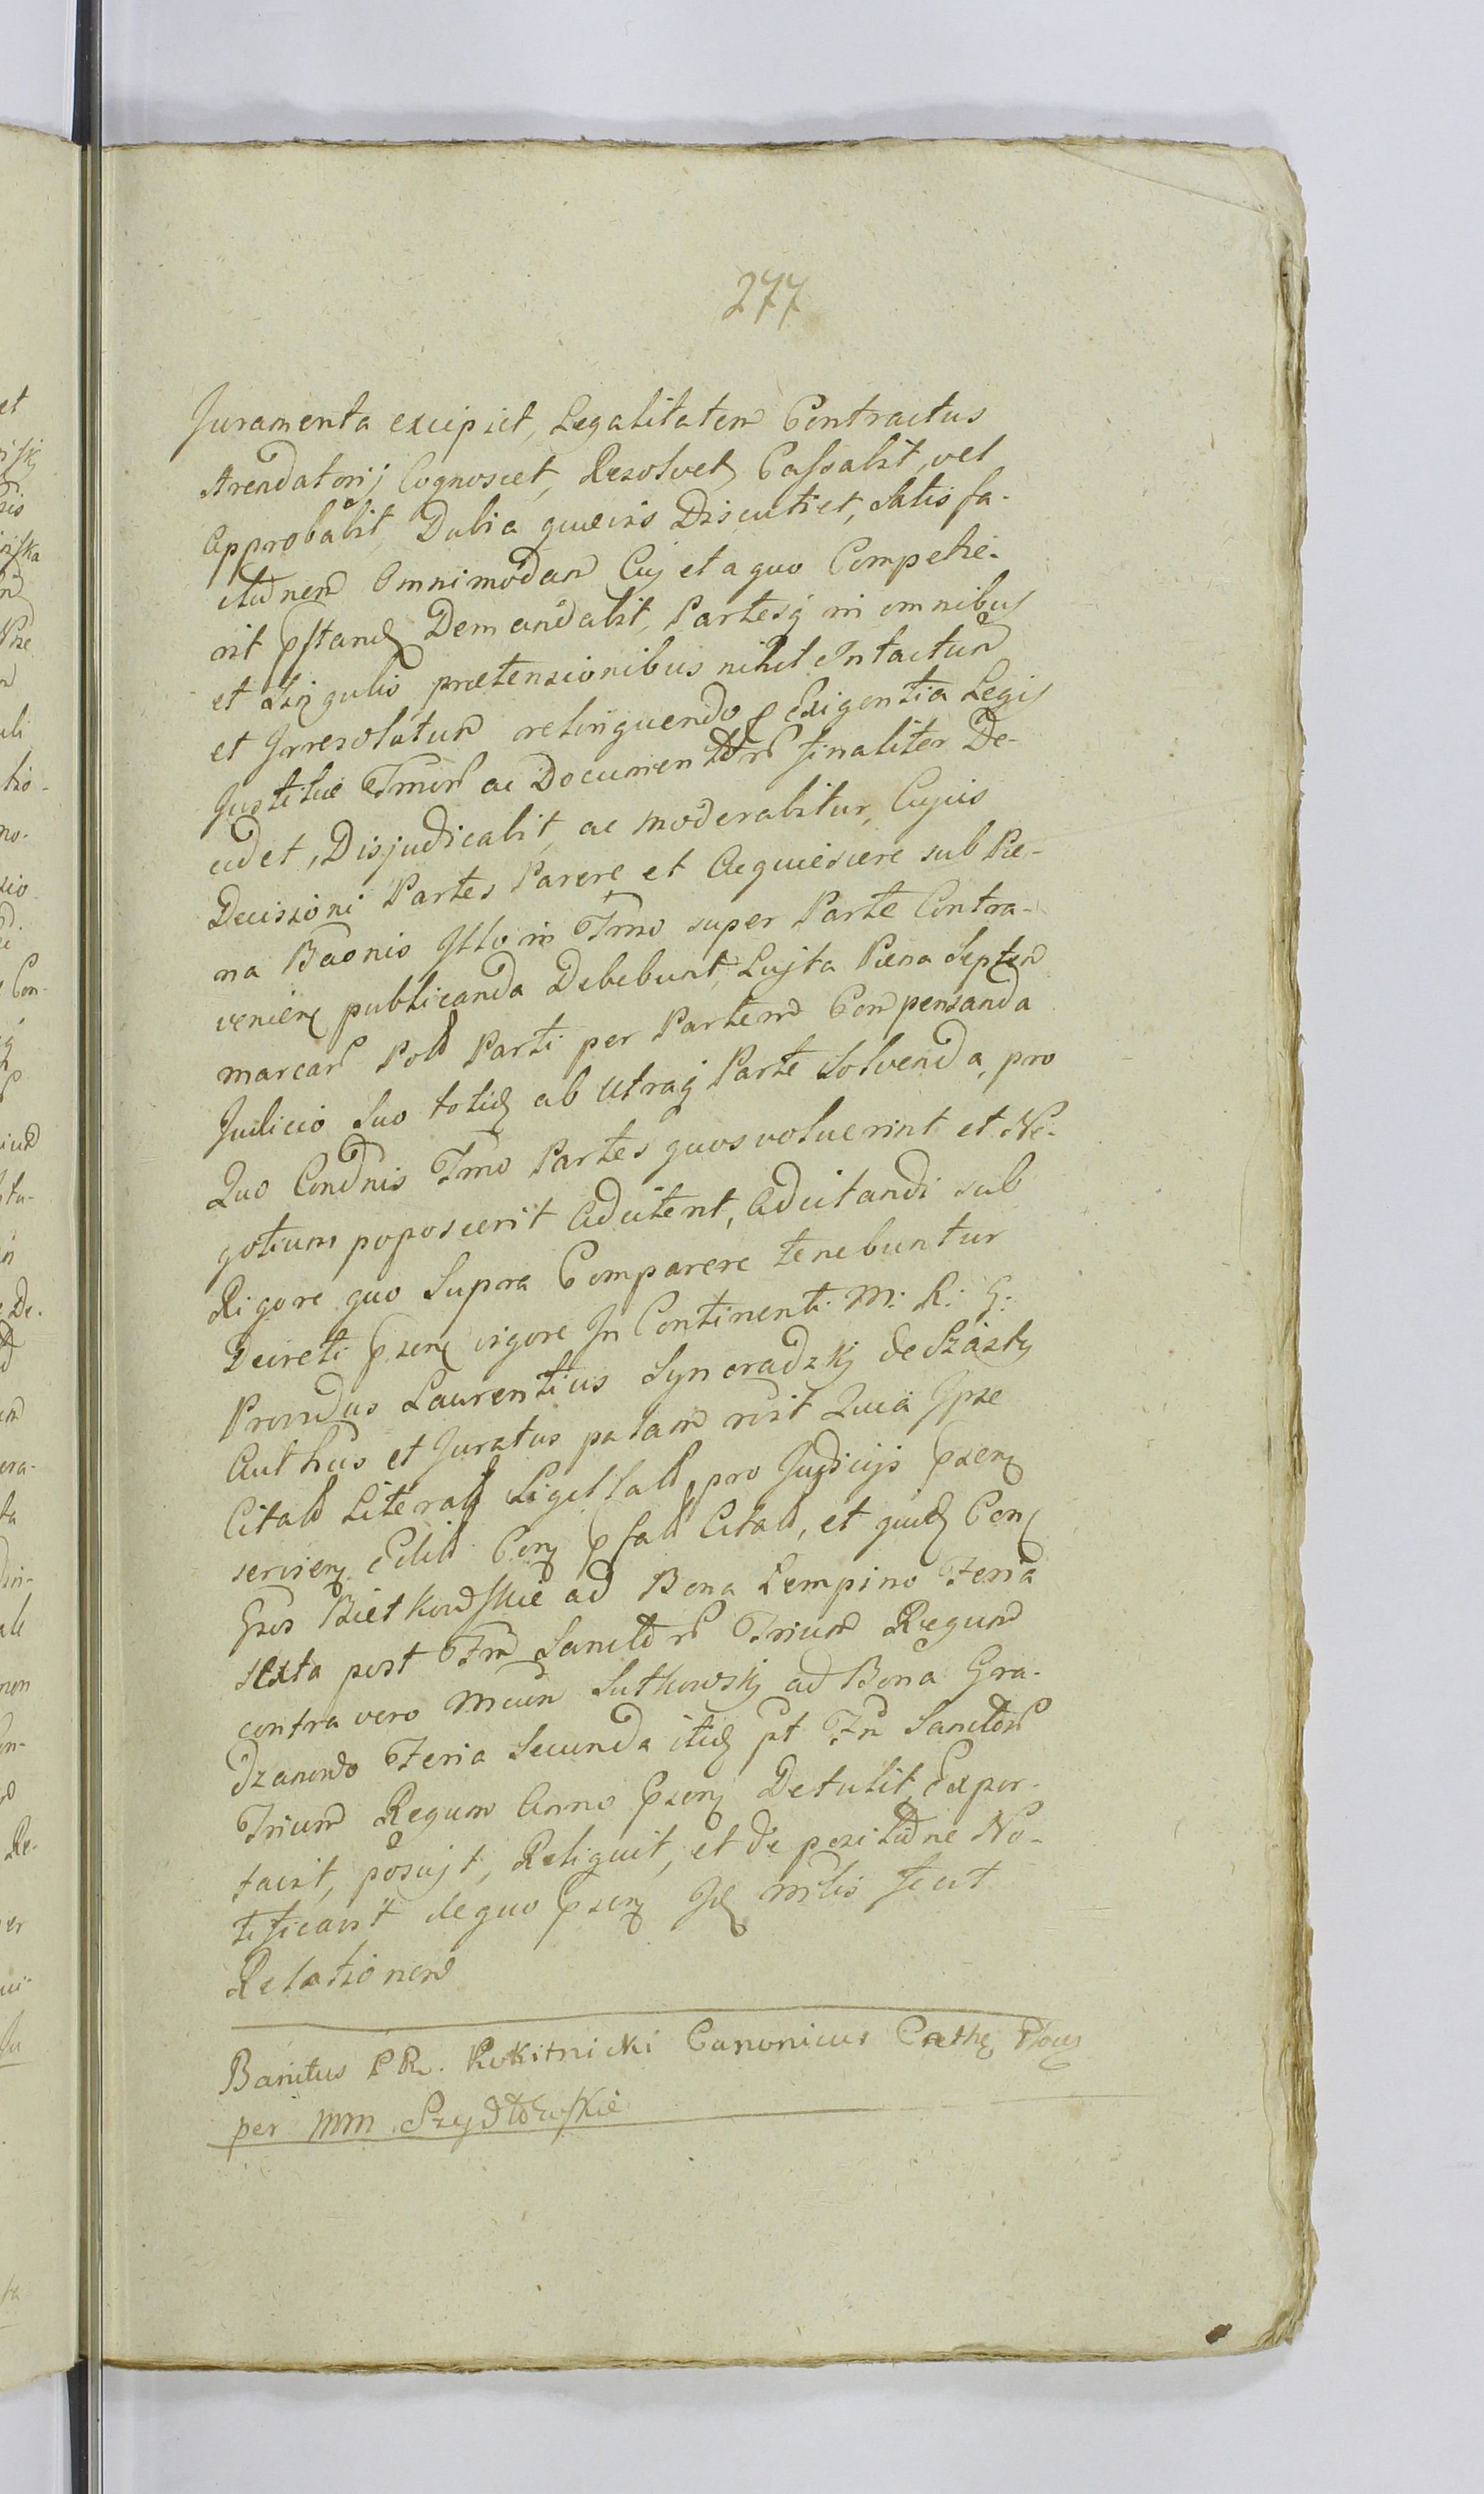 277
Juramenta excipiet, Legalitatem Contractus
Arendatorij Cognoscet, Resolvet, Cassabit, vel
Approbabit, Dubia quaevis Discutiet, Satisfa-
ctionem Omnimodam Cuj et a quo Compette-
rit pstand Demandabit, Partesq in omnibus
et Singulis praetensionibus nihil Intactum
et Irresolutum relinquendo p Exigentia Legis
Justitiae Tmor ac Documentor finaliter De-
cidet, Disjudicabit, ac moderabitur, Cujus
Decisioni Partes Parere et Acquiescere sub Pae-
na Baonis Illo in Tmo super Parte Contra-
venien publicanda Debebunt, Luita Paena Septem
marcar Pold Parti per Partem Compensanda
Judicio Suo totid ab utraq Parte Solvenda, pro
Quo Condnis Tmo Partes quos voluerint et Ne-
gotium poposcerit Adcitent, Adcitandi sub
Rigore quo Supra Comparere tenebuntur
Decreti psen vigore In Continenti M: R: G:
Providus Laurentius Synoradzkj de Szasty
Authus et Juratus palam rcit Quia Ipse
Citaon Literaln Sigillatn pro Judicijs psen
servien Edidt Con psatn Citatn, et quid Con
Gsos Bietkowskie ad Bona Lempino Feria
sexta post Fm Sanctor Trium Regum
contra vero Mcum Sutkowskj ad Bona Gra-
dzanowo Feria Secunda itid pt Fm Sanctor
Trium Regum Anno psen Detulit, Expor-
tavit, posujt, Reliquit, et de positione No-
tificavit de quo psen Id mlis fecit
Relationem
Banitus PR. Rokitnicki Canonicus Cathe Ploc
per MM Szydłowskie